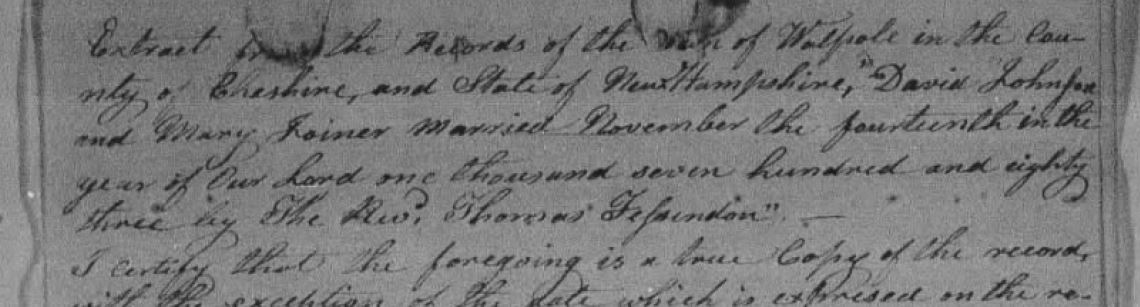 Extract from the Records of the town of Walpole in the Cou-
nty of Cheshire, and State of New Hampshire, "David Johnson
and Mary Joiner married November the fourteenth in the
year of Our Lord one thousand seven hundred and eighty
three by The Revd. Thomas Fessendon". —
I certify that the foregoing is a true Copy of the record,
with the exception of the date which is expressed on the re-